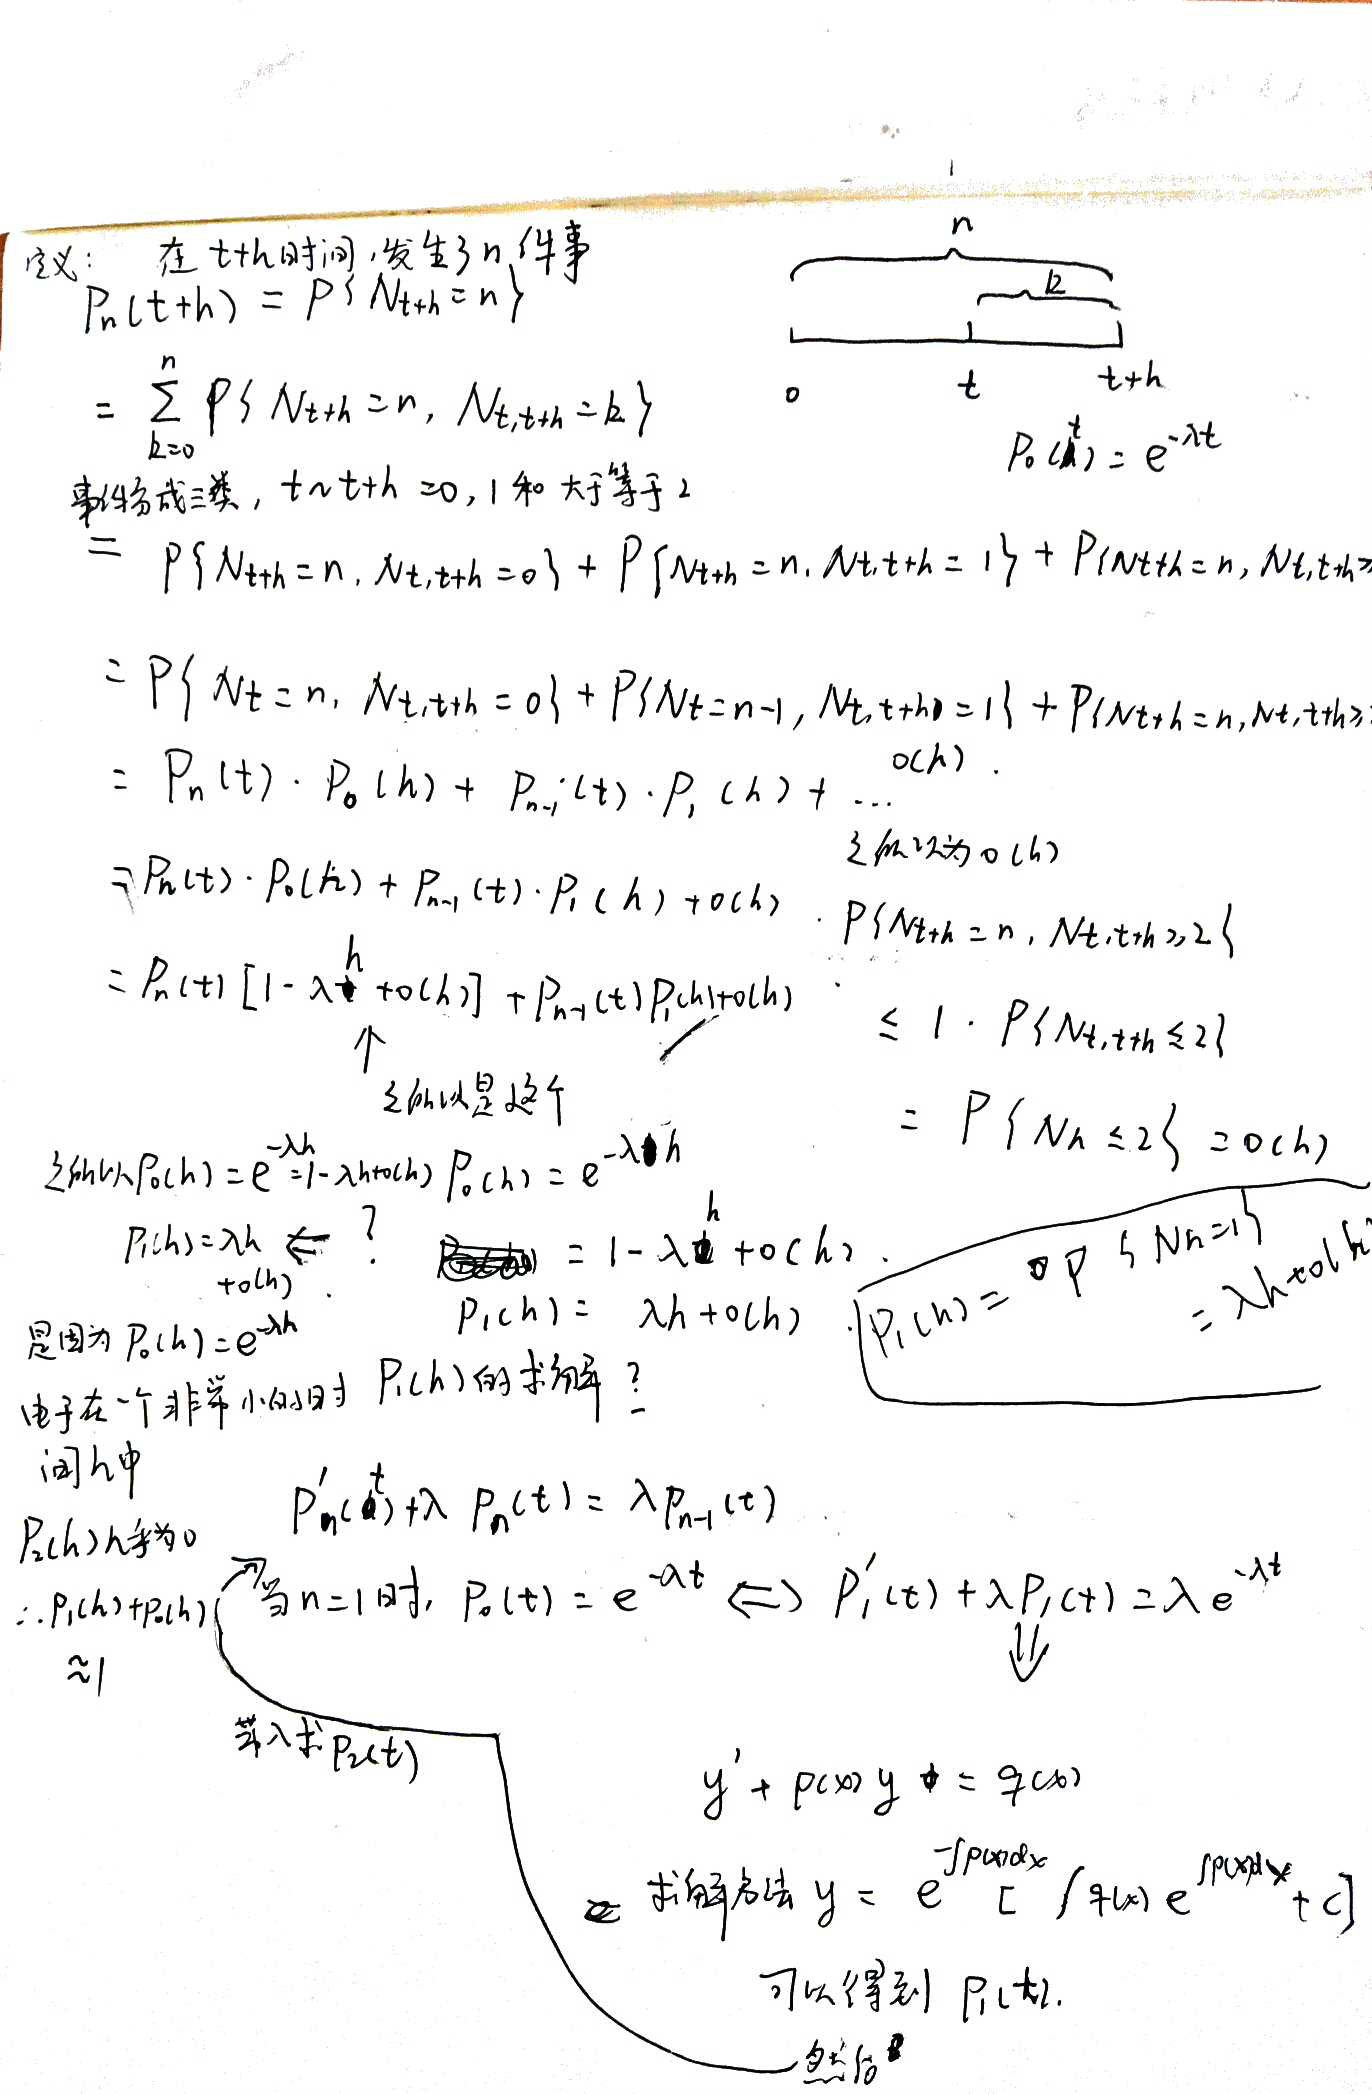 定义: 在 t+h时间,发生了n件事
Pn(t+h) = P{Nt+h = n}
= Σ P{Nt+h = n, Nt,t+h = k}
n
k=0
n
k
0 t t+h
P₀(t) = e^-λt
事件分成三类, t~t+h =0, 1 和 大于等于 2
= P{Nt+h = n, Nt,t+h = 0} + P{Nt+h = n, Nt,t+h = 1} + P{Nt+h = n, Nt,t+h ≥
= P{Nt = n, Nt,t+h = 0} + P{Nt = n-1, Nt,t+h = 1} + P{Nt+h = n, Nt,t+h ≥
= Pn(t) · P₀(h) + Pn-1(t) · P₁(h) + ...
o(h).
= Pn(t) · P₀(h) + Pn-1(t) · P₁(h) + o(h)
= Pn(t) [1 - λh + o(h)] + Pn-1(t) P₁(h) + o(h)
↑
之所以是这个
之所以为 o(h)
P{Nt+h = n, Nt,t+h ≥ 2}
≤ 1 · P{Nt,t+h ≤ 2}
= P{Nh ≤ 2} = o(h)
之所以P₀(h) = e^-λh = 1-λh+o(h)
P₁(h) = λh ⇐ ?
+o(h).
是因为 P₀(h) = e^-λh
电子在一个非常小的时
间h中
P₂(h) 几乎为0
∴ P₁(h)+P₀(h)
≈1
P₀(h) = e^-λh
= 1 - λh + o(h).
P₁(h) = λh + o(h)
P₁(h) 的求解?
P₁(h) = P{Nh = 1}
= λh + o(h)
P'n(t) + λ Pn(t) = λPn-1(t)
当 n=1时, P₀(t) = e^-λt ⇔ P₁'(t) + λP₁(t) = λe^-λt
⇓
带入求 P₂(t)
y' + p(x) y = q(x)
求解方法 y = e^-∫p(x)dx [∫q(x) e^∫p(x)dx + c]
可以得到 P₁(t).
然后